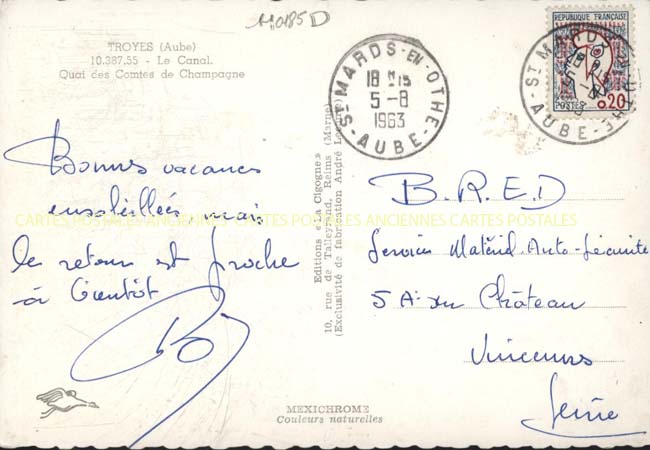 110185D
TROYES (Aube)
10.387.55 - Le Canal.
Quai des Comtes de Champagne
Bonnes vacances
ensoleillées, mais
le retour est proche
à bientôt
CARTES POSTALES ANCIENNES CARTES POSTALES ANCIENNES CARTES POSTALES
Editions « La Cigogne »
10, rue de Talleyrand, Reims (Marne)
(Exclusivité de fabrication André Leconte)
MEXICHROME
Couleurs naturelles
ST MARDS-EN-OTHE
18 H 15
5-8
1963
AUBE
REPUBLIQUE FRANÇAISE
POSTES 0,20
ST MARDS
AUBE
B.R.E.D
Service Matériel Auto-Sécurité
5 Av du Château
Vincennes
Seine